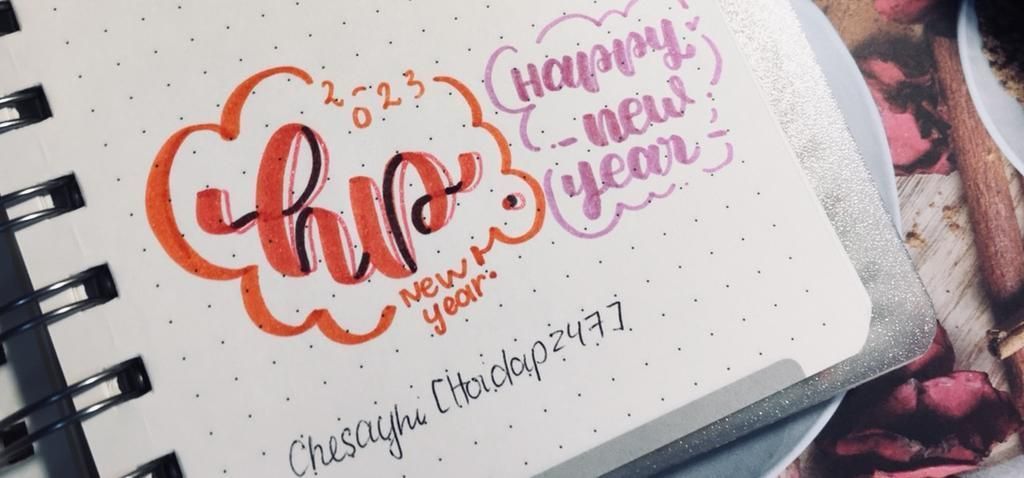 2023
hp
New
year.
Happy
new
year
Chesayhi [Hoidap247]